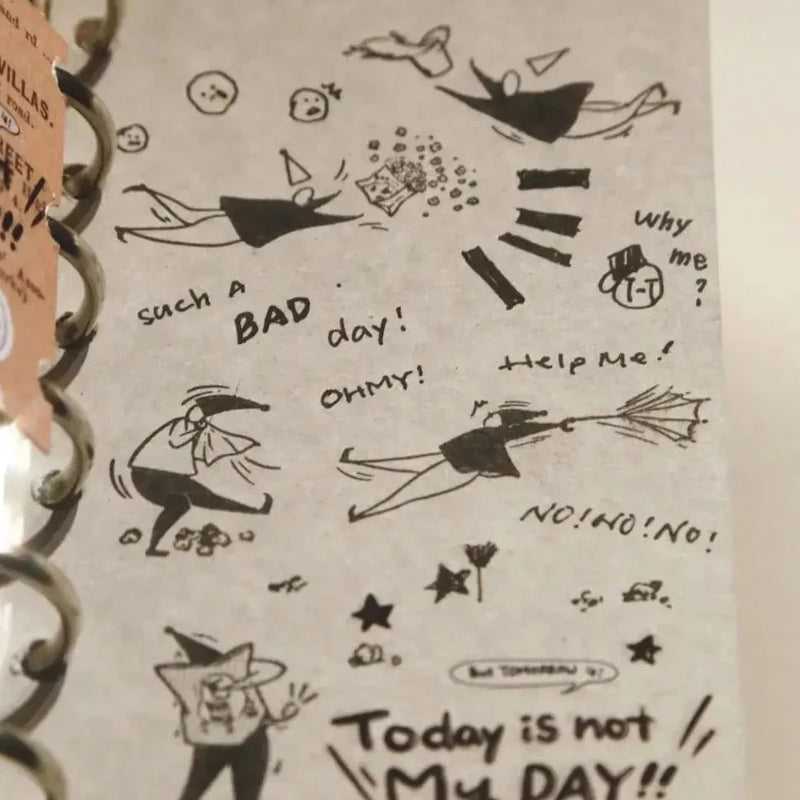 VILLAS.
road.
why
me
?
T-T
such A
BAD day!
Help Me!
OHMY!
NO! NO! NO!
But TOMORROW is!
Today is not
My DAY!!